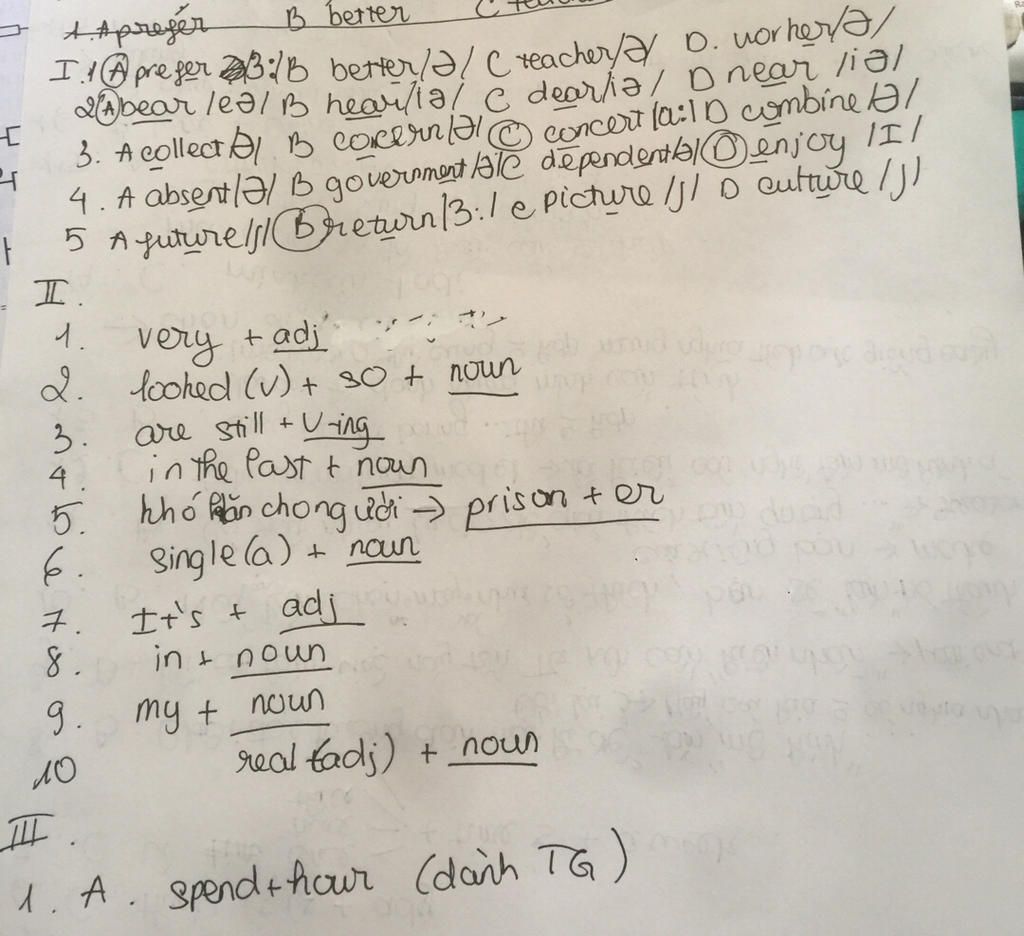 1. A prefer B better C
I.1 A prefer /ɜ:/ B better /ə/ C teacher /ə/ D. worher /ə/
2 A bear /eə/ B hear /iə/ C dear /iə/ D near /iə/
3. A collect /ə/ B concern /ə/ C concert /ɑ:/ D combine /ə/
4. A absent /ə/ B government /ə/ C dependent /ə/ D enjoy /I/
5 A future /ʃ/ B return /ɜ:/ C picture /ʃ/ D culture /ʃ/
II.
1. very + adj
2. looked (v) + so + noun
3. are still + V-ing
4. in the past + noun
5. khó khăn cho người → prison + er
6. single (a) + noun
7. It's + adj
8. in + noun
9. my + noun
10 real (adj) + noun
III.
1. A. spend + hour (dành TG)